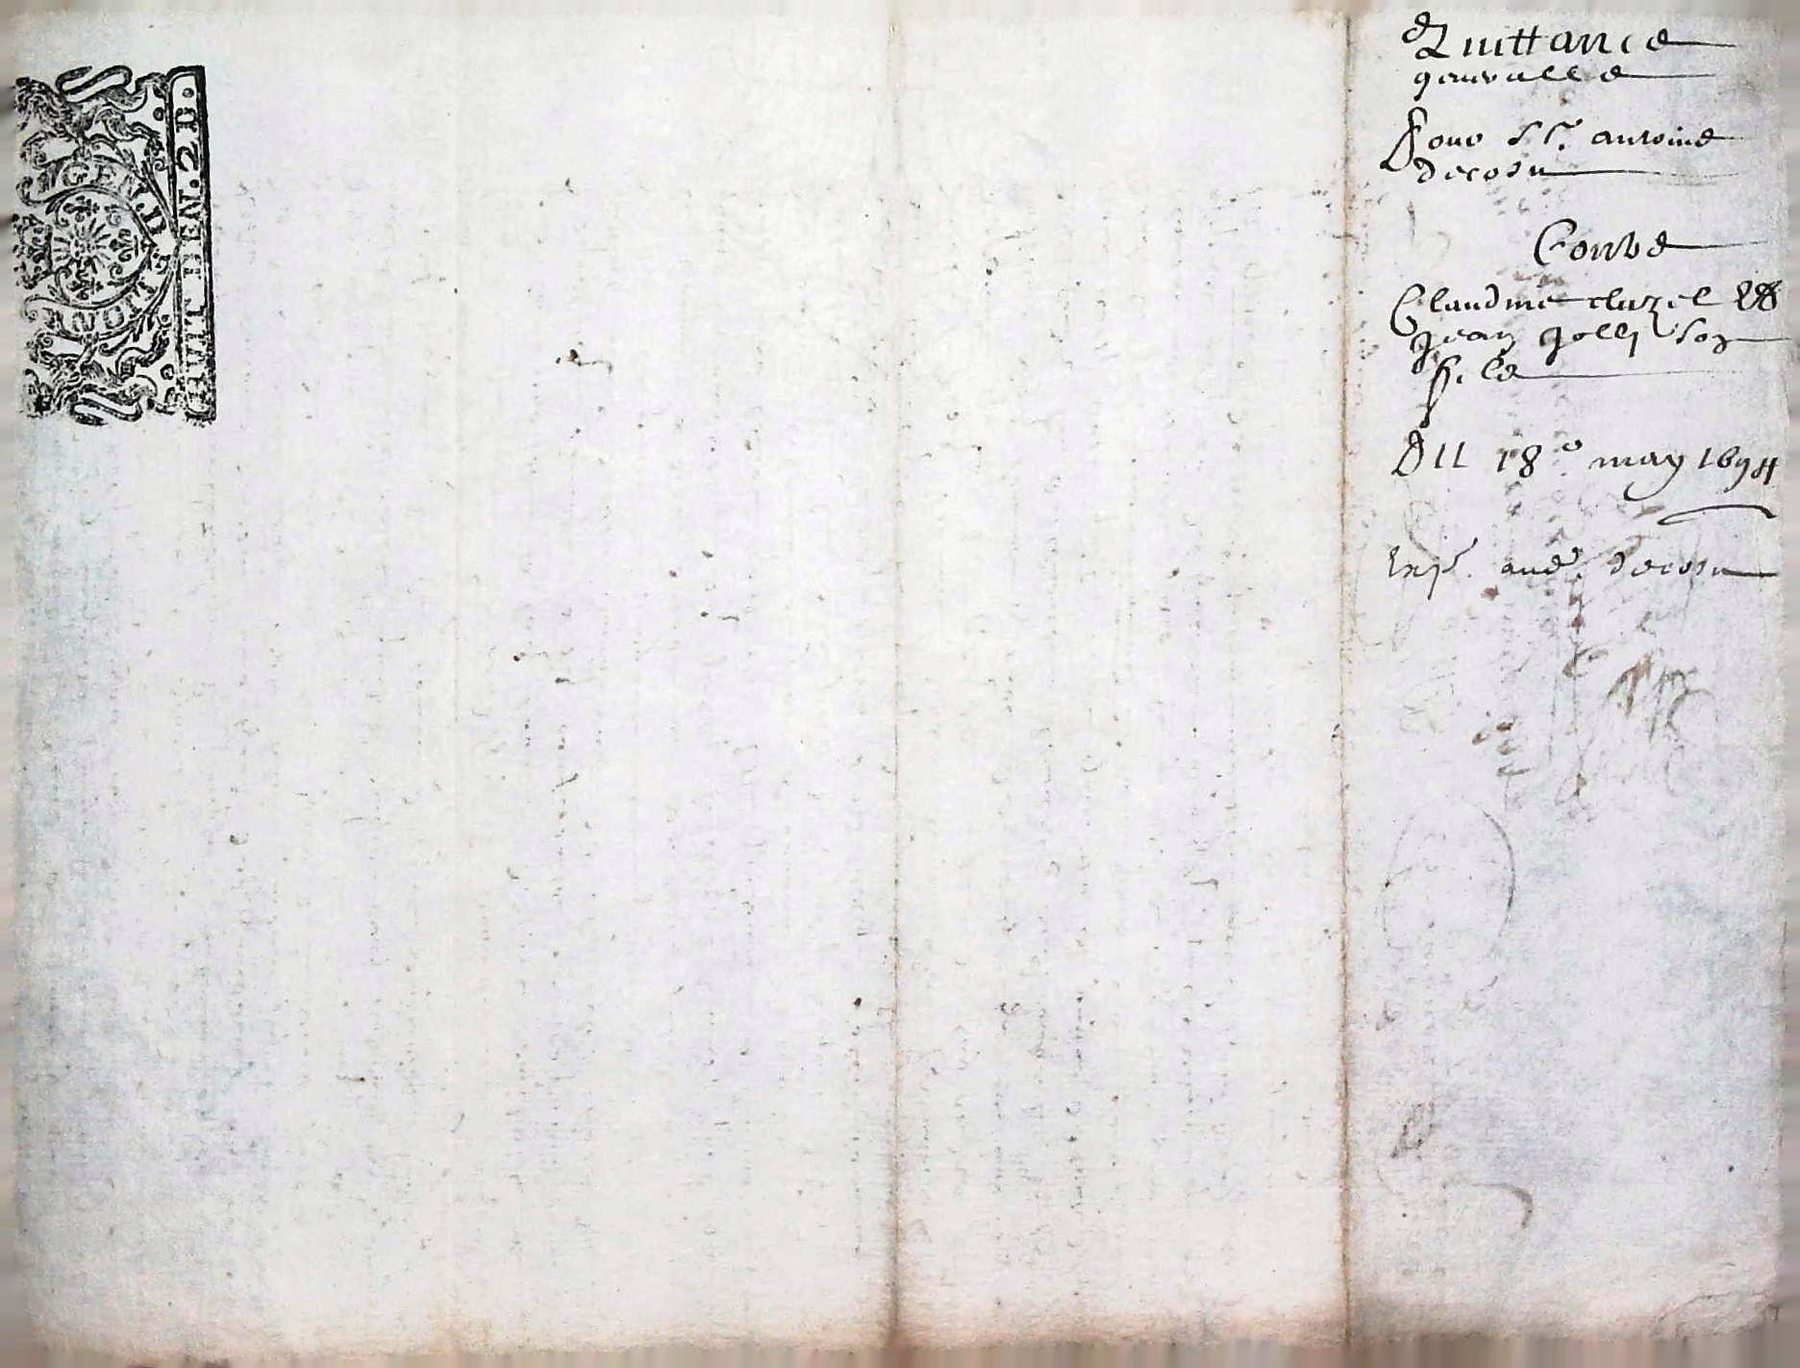 GEN. DE LION
HUIT DEN. 2 D.
Quittance
gen̄ralle
Pour Sr. antoine
decosu
Contre
Claudine cluzel &
Jean Jolly son
fils
Du 18e may 1694
Exp. aud. decosu